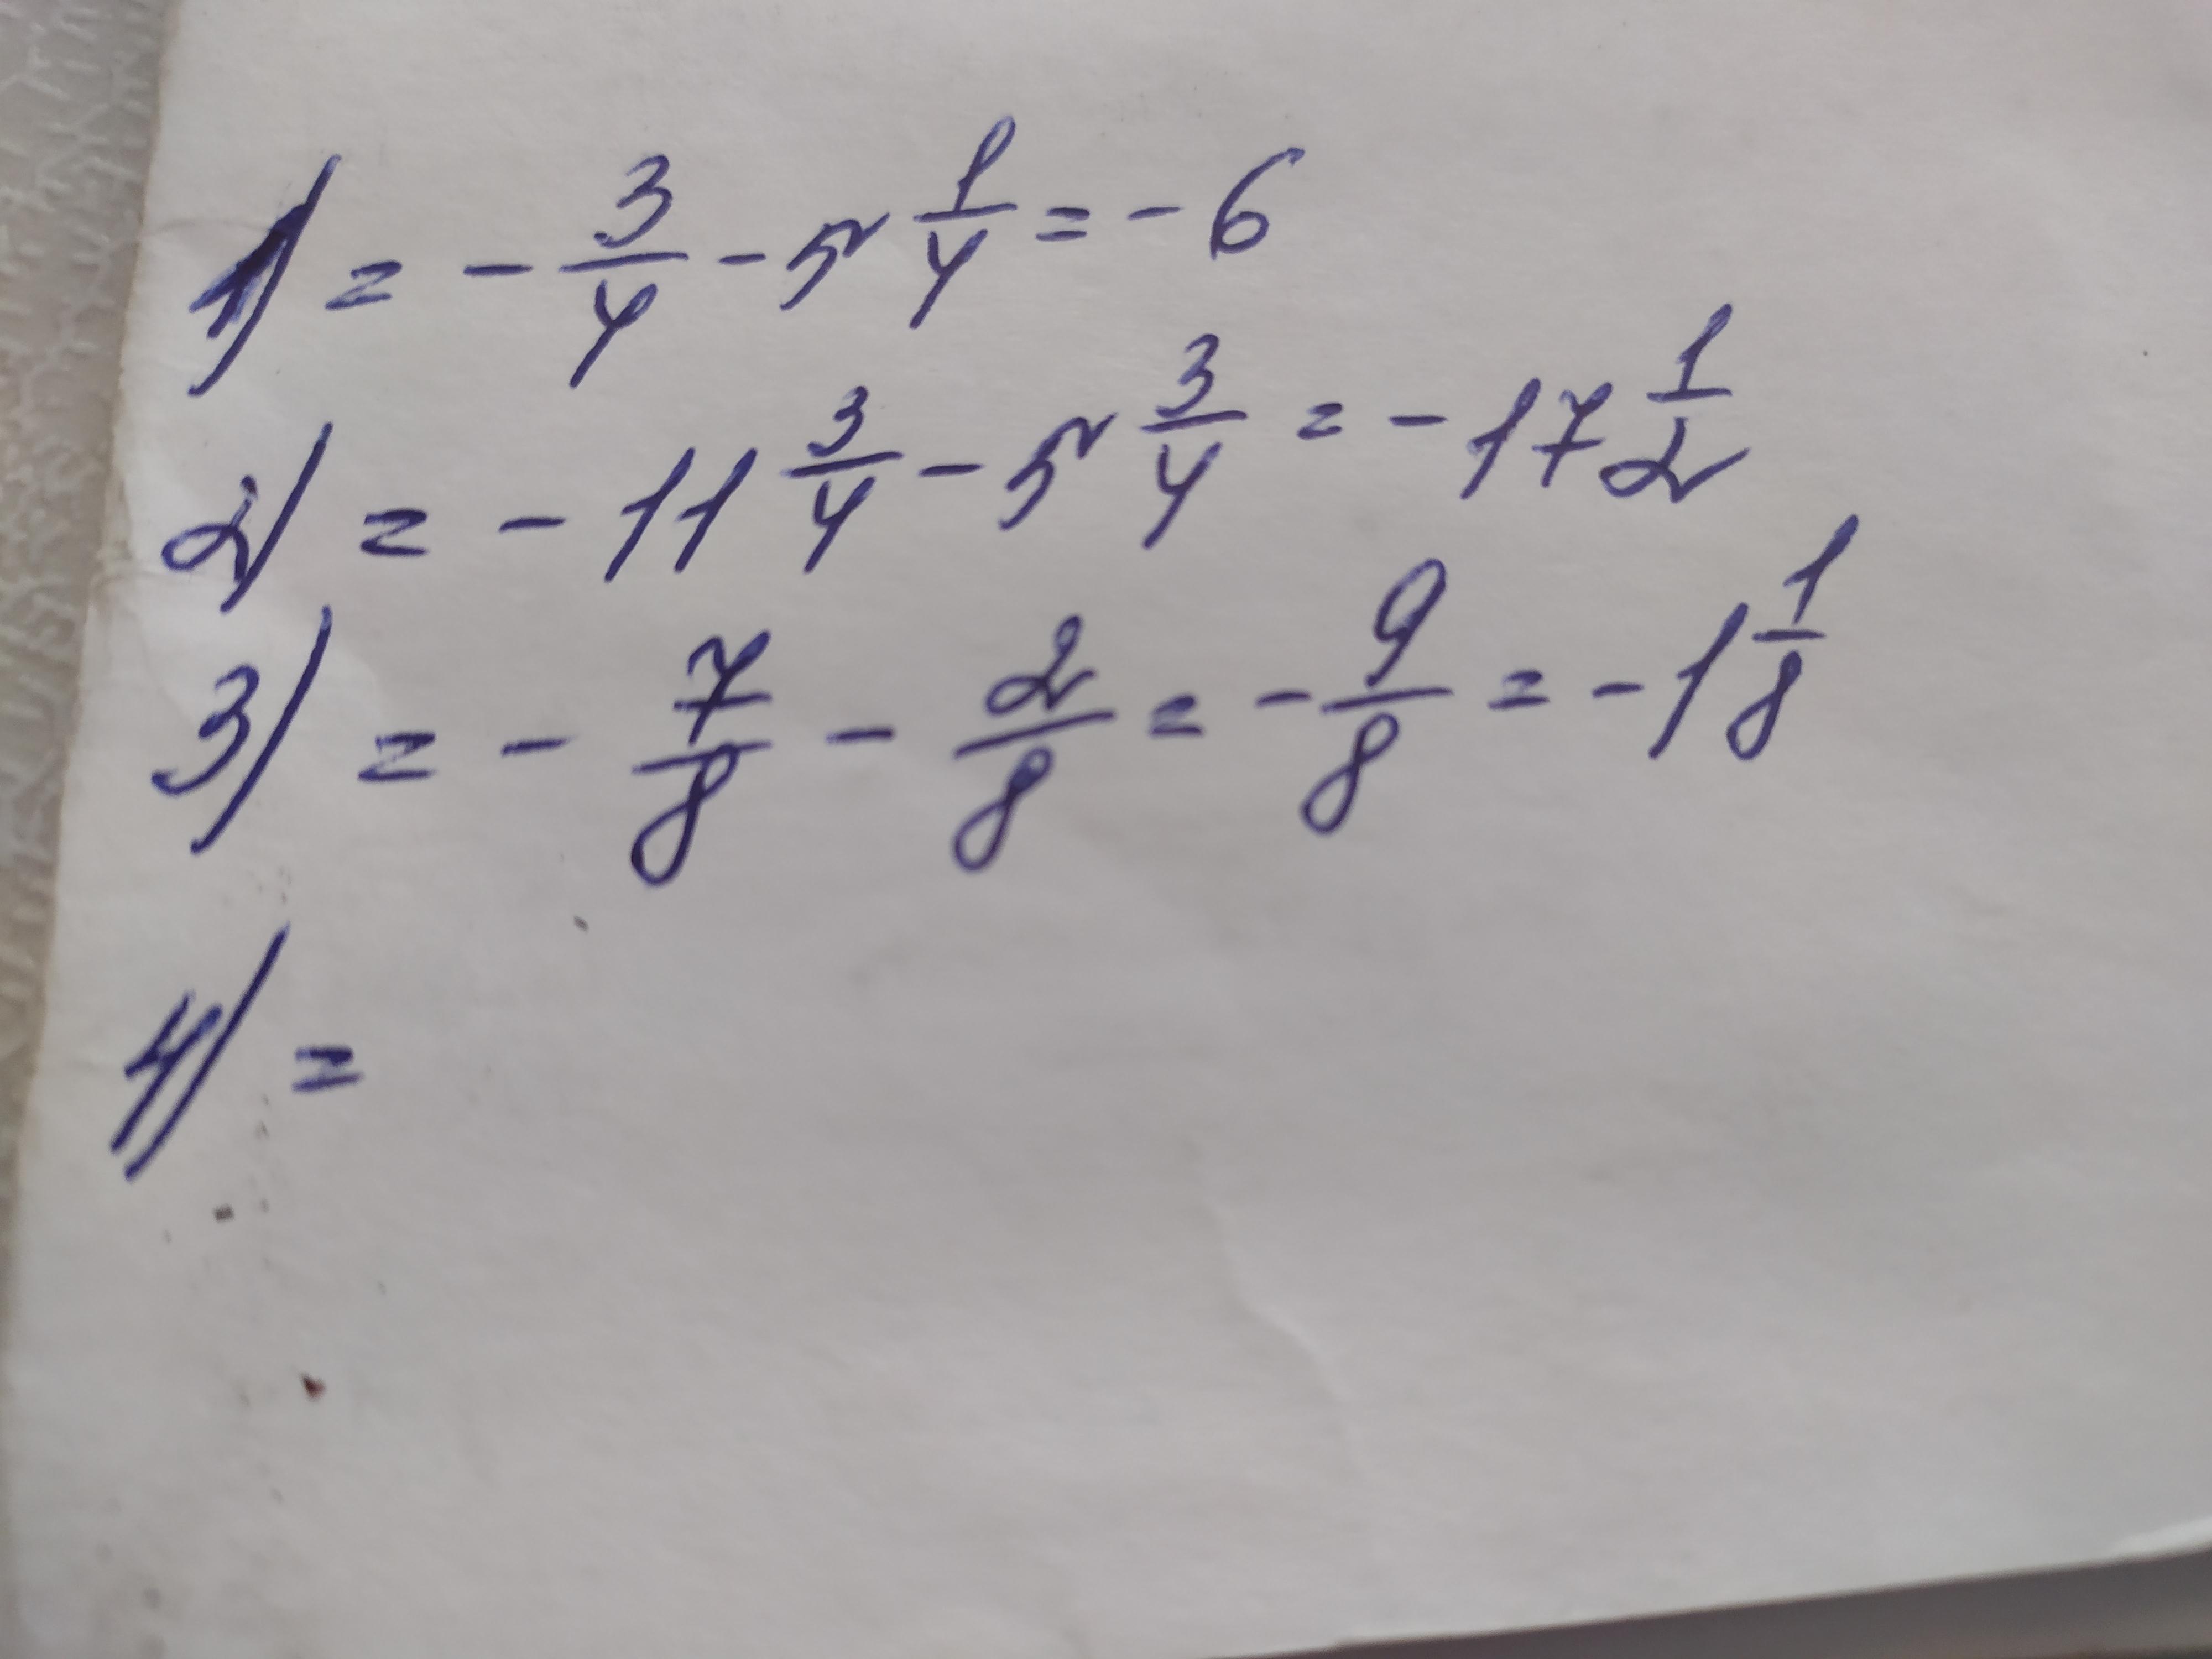 1) = - 3/4 - 5 1/4 = - 6
2) = - 11 3/4 - 5 3/4 = - 17 1/2
3) = - 7/8 - 2/8 = - 9/8 = - 1 1/8
4) =